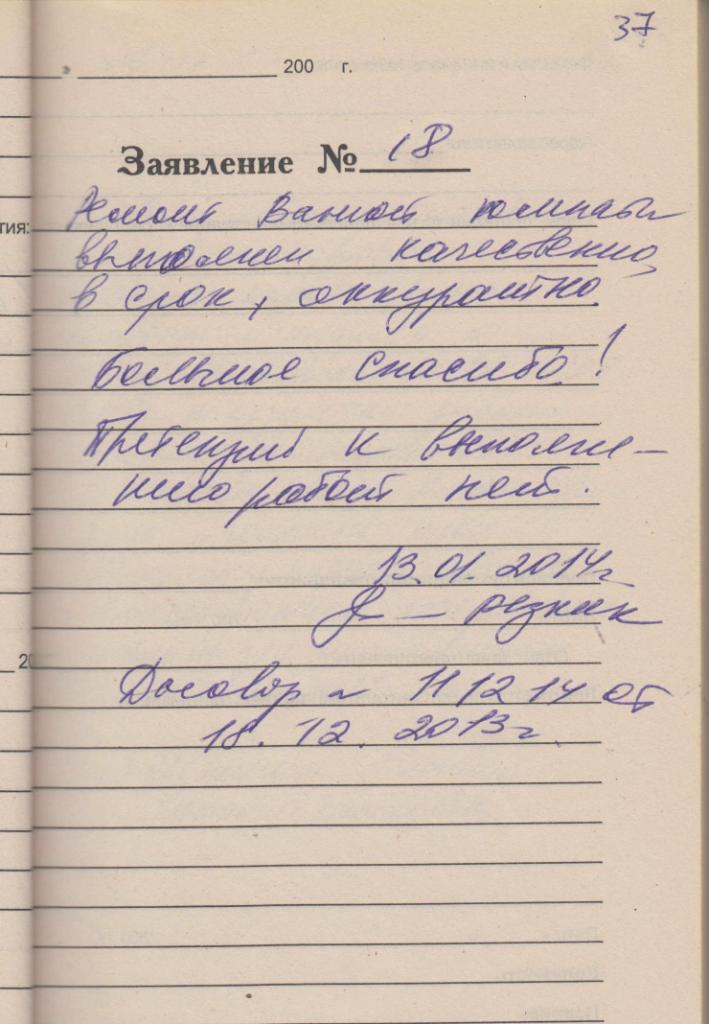 37
200 г.
Заявление № 18
тия:
Ремонт ванной комнаты
выполнен качественно,
в срок, аккуратно.
Большое спасибо!
Претензий к выполне-
нию работ нет.
13.01.2014г
Резник
20
Договор № 111214 от
18.12.2013г.